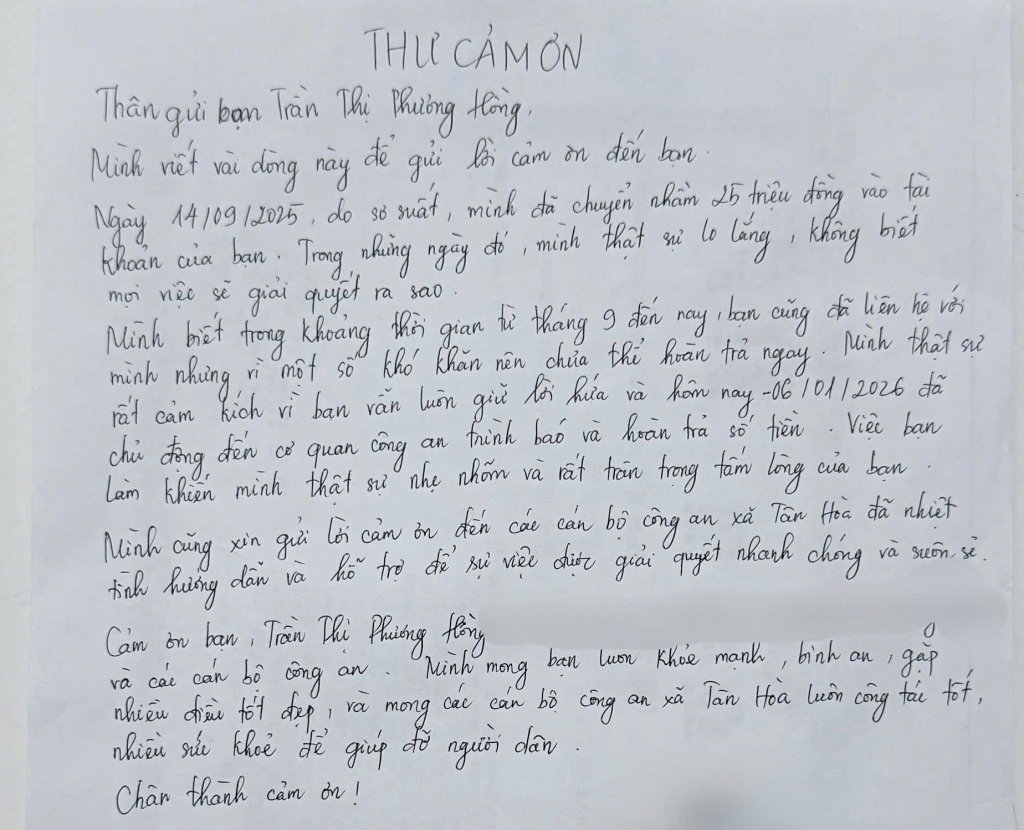 THƯ CẢM ƠN
Thân gửi bạn Trần Thị Phương Hồng,
Mình viết vài dòng này để gửi lời cảm ơn đến bạn.
Ngày 14/09/2025, do sơ suất, mình đã chuyển nhầm 25 triệu đồng vào tài
khoản của bạn. Trong những ngày đó, mình thật sự lo lắng, không biết
mọi việc sẽ giải quyết ra sao.
Mình biết trong khoảng thời gian từ tháng 9 đến nay, bạn cũng đã liên hệ với
mình nhưng vì một số khó khăn nên chưa thể hoàn trả ngay. Mình thật sự
rất cảm kích vì bạn vẫn luôn giữ lời hứa và hôm nay -06/01/2026 đã
chủ động đến cơ quan công an trình báo và hoàn trả số tiền. Việc bạn
làm khiến mình thật sự nhẹ nhõm và rất trân trọng tấm lòng của bạn.
Mình cũng xin gửi lời cảm ơn đến các cán bộ công an xã Tân Hoà đã nhiệt
tình hướng dẫn và hỗ trợ để sự việc được giải quyết nhanh chóng và suôn sẻ.
Cảm ơn bạn, Trần Thị Phương Hồng
và các cán bộ công an. Mình mong bạn luôn khỏe mạnh, bình an, gặp
nhiều điều tốt đẹp, và mong các cán bộ công an xã Tân Hoà luôn công tác tốt,
nhiều sức khoẻ để giúp đỡ người dân.
Chân thành cảm ơn!